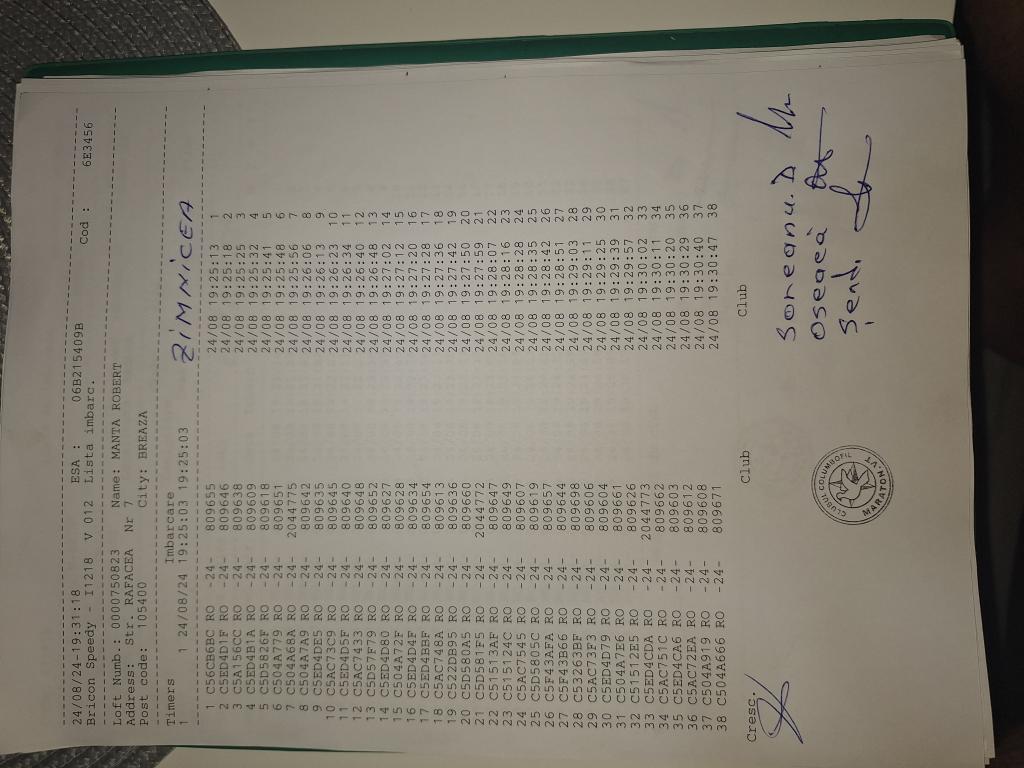 24/08/24-19:31:18 ESA : 06B215409B Cod : 6E3456
Bricon Speedy - I1218 V 012 Lista imbarc.
Loft Numb.: 0000750823 Name: MANTA ROBERT
Address: Str.RAFACEA Nr 7
Post code: 105400 City: BREAZA
Timers Imbarcare
1 24/08/24 19:25:03 19:25:03 ZIMNICEA
1 C56CB6BC RO -24- 809655 24/08 19:25:13 1
2 C5ED4D1F RO -24- 809646 24/08 19:25:18 2
3 C5A156CC RO -24- 809638 24/08 19:25:25 3
4 C5ED4B1A RO -24- 809609 24/08 19:25:32 4
5 C5D582EF RO -24- 809618 24/08 19:25:41 5
6 C504A779 RO -24- 809651 24/08 19:25:48 6
7 C504A68A RO -24- 2044775 24/08 19:25:56 7
8 C504A7A9 RO -24- 809642 24/08 19:26:06 8
9 C5ED4DE5 RO -24- 809635 24/08 19:26:13 9
10 C5AC73C9 RO -24- 809645 24/08 19:26:23 10
11 C5ED4D5F RO -24- 809640 24/08 19:26:34 11
12 C5AC7433 RO -24- 809648 24/08 19:26:40 12
13 C5D57F79 RO -24- 809652 24/08 19:26:48 13
14 C5ED4D80 RO -24- 809627 24/08 19:27:02 14
15 C504A72F RO -24- 809628 24/08 19:27:12 15
16 C5ED4D4F RO -24- 809634 24/08 19:27:20 16
17 C5ED4BBF RO -24- 809654 24/08 19:27:28 17
18 C5AC748A RO -24- 809613 24/08 19:27:36 18
19 C522DB95 RO -24- 809636 24/08 19:27:42 19
20 C5D580A5 RO -24- 809660 24/08 19:27:50 20
21 C5D581F5 RO -24- 2044772 24/08 19:27:59 21
22 C51513AF RO -24- 809647 24/08 19:28:07 22
23 C515124C RO -24- 809649 24/08 19:28:16 23
24 C5AC7545 RO -24- 809607 24/08 19:28:28 24
25 C5D5805C RO -24- 809619 24/08 19:28:35 25
26 C5F43AFA RO -24- 809657 24/08 19:28:42 26
27 C5F43B66 RO -24- 809644 24/08 19:28:51 27
28 C53263BF RO -24- 809698 24/08 19:29:03 28
29 C5AC73F3 RO -24- 809606 24/08 19:29:11 29
30 C5ED4D79 RO -24- 809604 24/08 19:29:25 30
31 C504A7E6 RO -24- 809661 24/08 19:29:39 31
32 C51512E5 RO -24- 809626 24/08 19:29:57 32
33 C5ED4CDA RO -24- 2044773 24/08 19:30:02 33
34 C5AC751C RO -24- 809662 24/08 19:30:11 34
35 C5ED4CA6 RO -24- 809603 24/08 19:30:20 35
36 C5AC72EA RO -24- 809612 24/08 19:30:29 36
37 C504A919 RO -24- 809608 24/08 19:30:40 37
38 C504A666 RO -24- 809671 24/08 19:30:47 38
Cresc. Club Club
CLUBUL COLUMBOFIL
MARATON VT